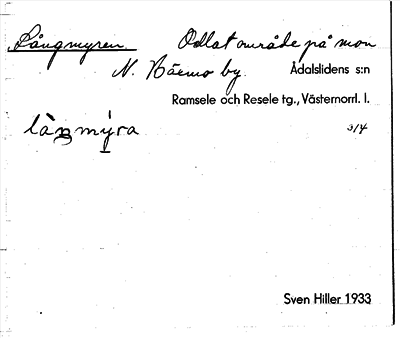 Långmyren Odlat område på mon
N. Bäemo by. Ådalslidens s:n
Ramsele och Resele tg., Västernorrl. l.
3/4
Sven Hiller 1933